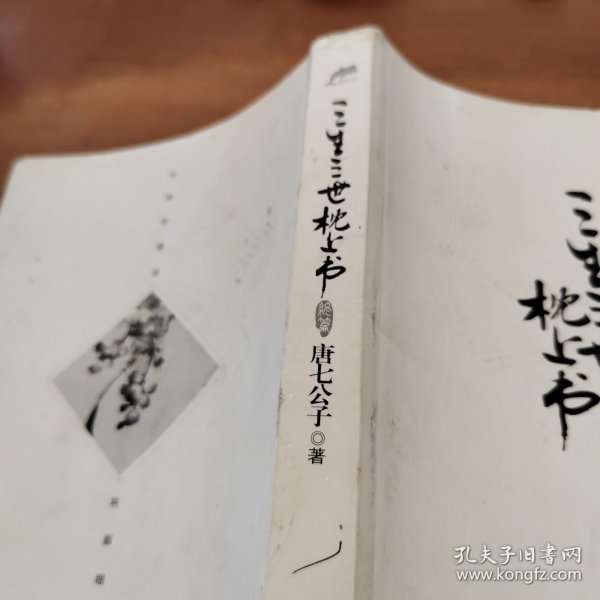 三生三世枕上书
终篇
唐七公子◎著
三生三世
枕上书
孔夫子旧书网
www.kongfz.com